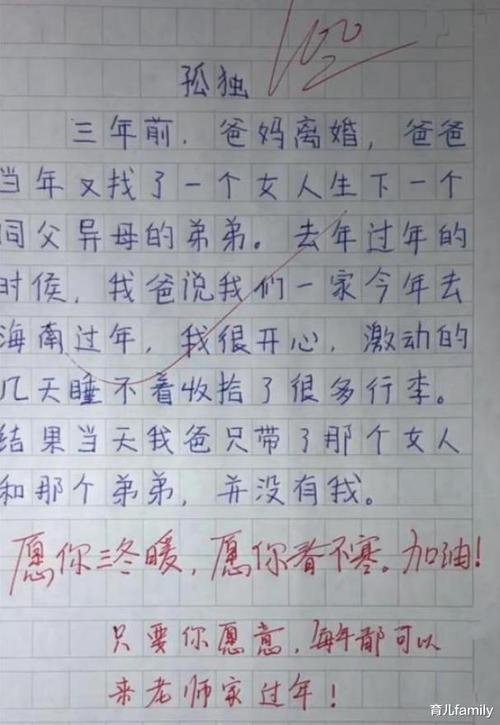 100
孤独
三年前，爸妈离婚，爸爸
当年又找了一个女人生下一个
同父异母的弟弟。去年过年的
时候，我爸说我们一家今年去
海南过年，我很开心，激动的
几天睡不着收拾了很多行李。
结果当天我爸只带了那个女人
和那个弟弟，并没有我。
愿你三冬暖，愿你春不寒。加油！
只要你愿意，每年都可以
来老师家过年！
育儿family